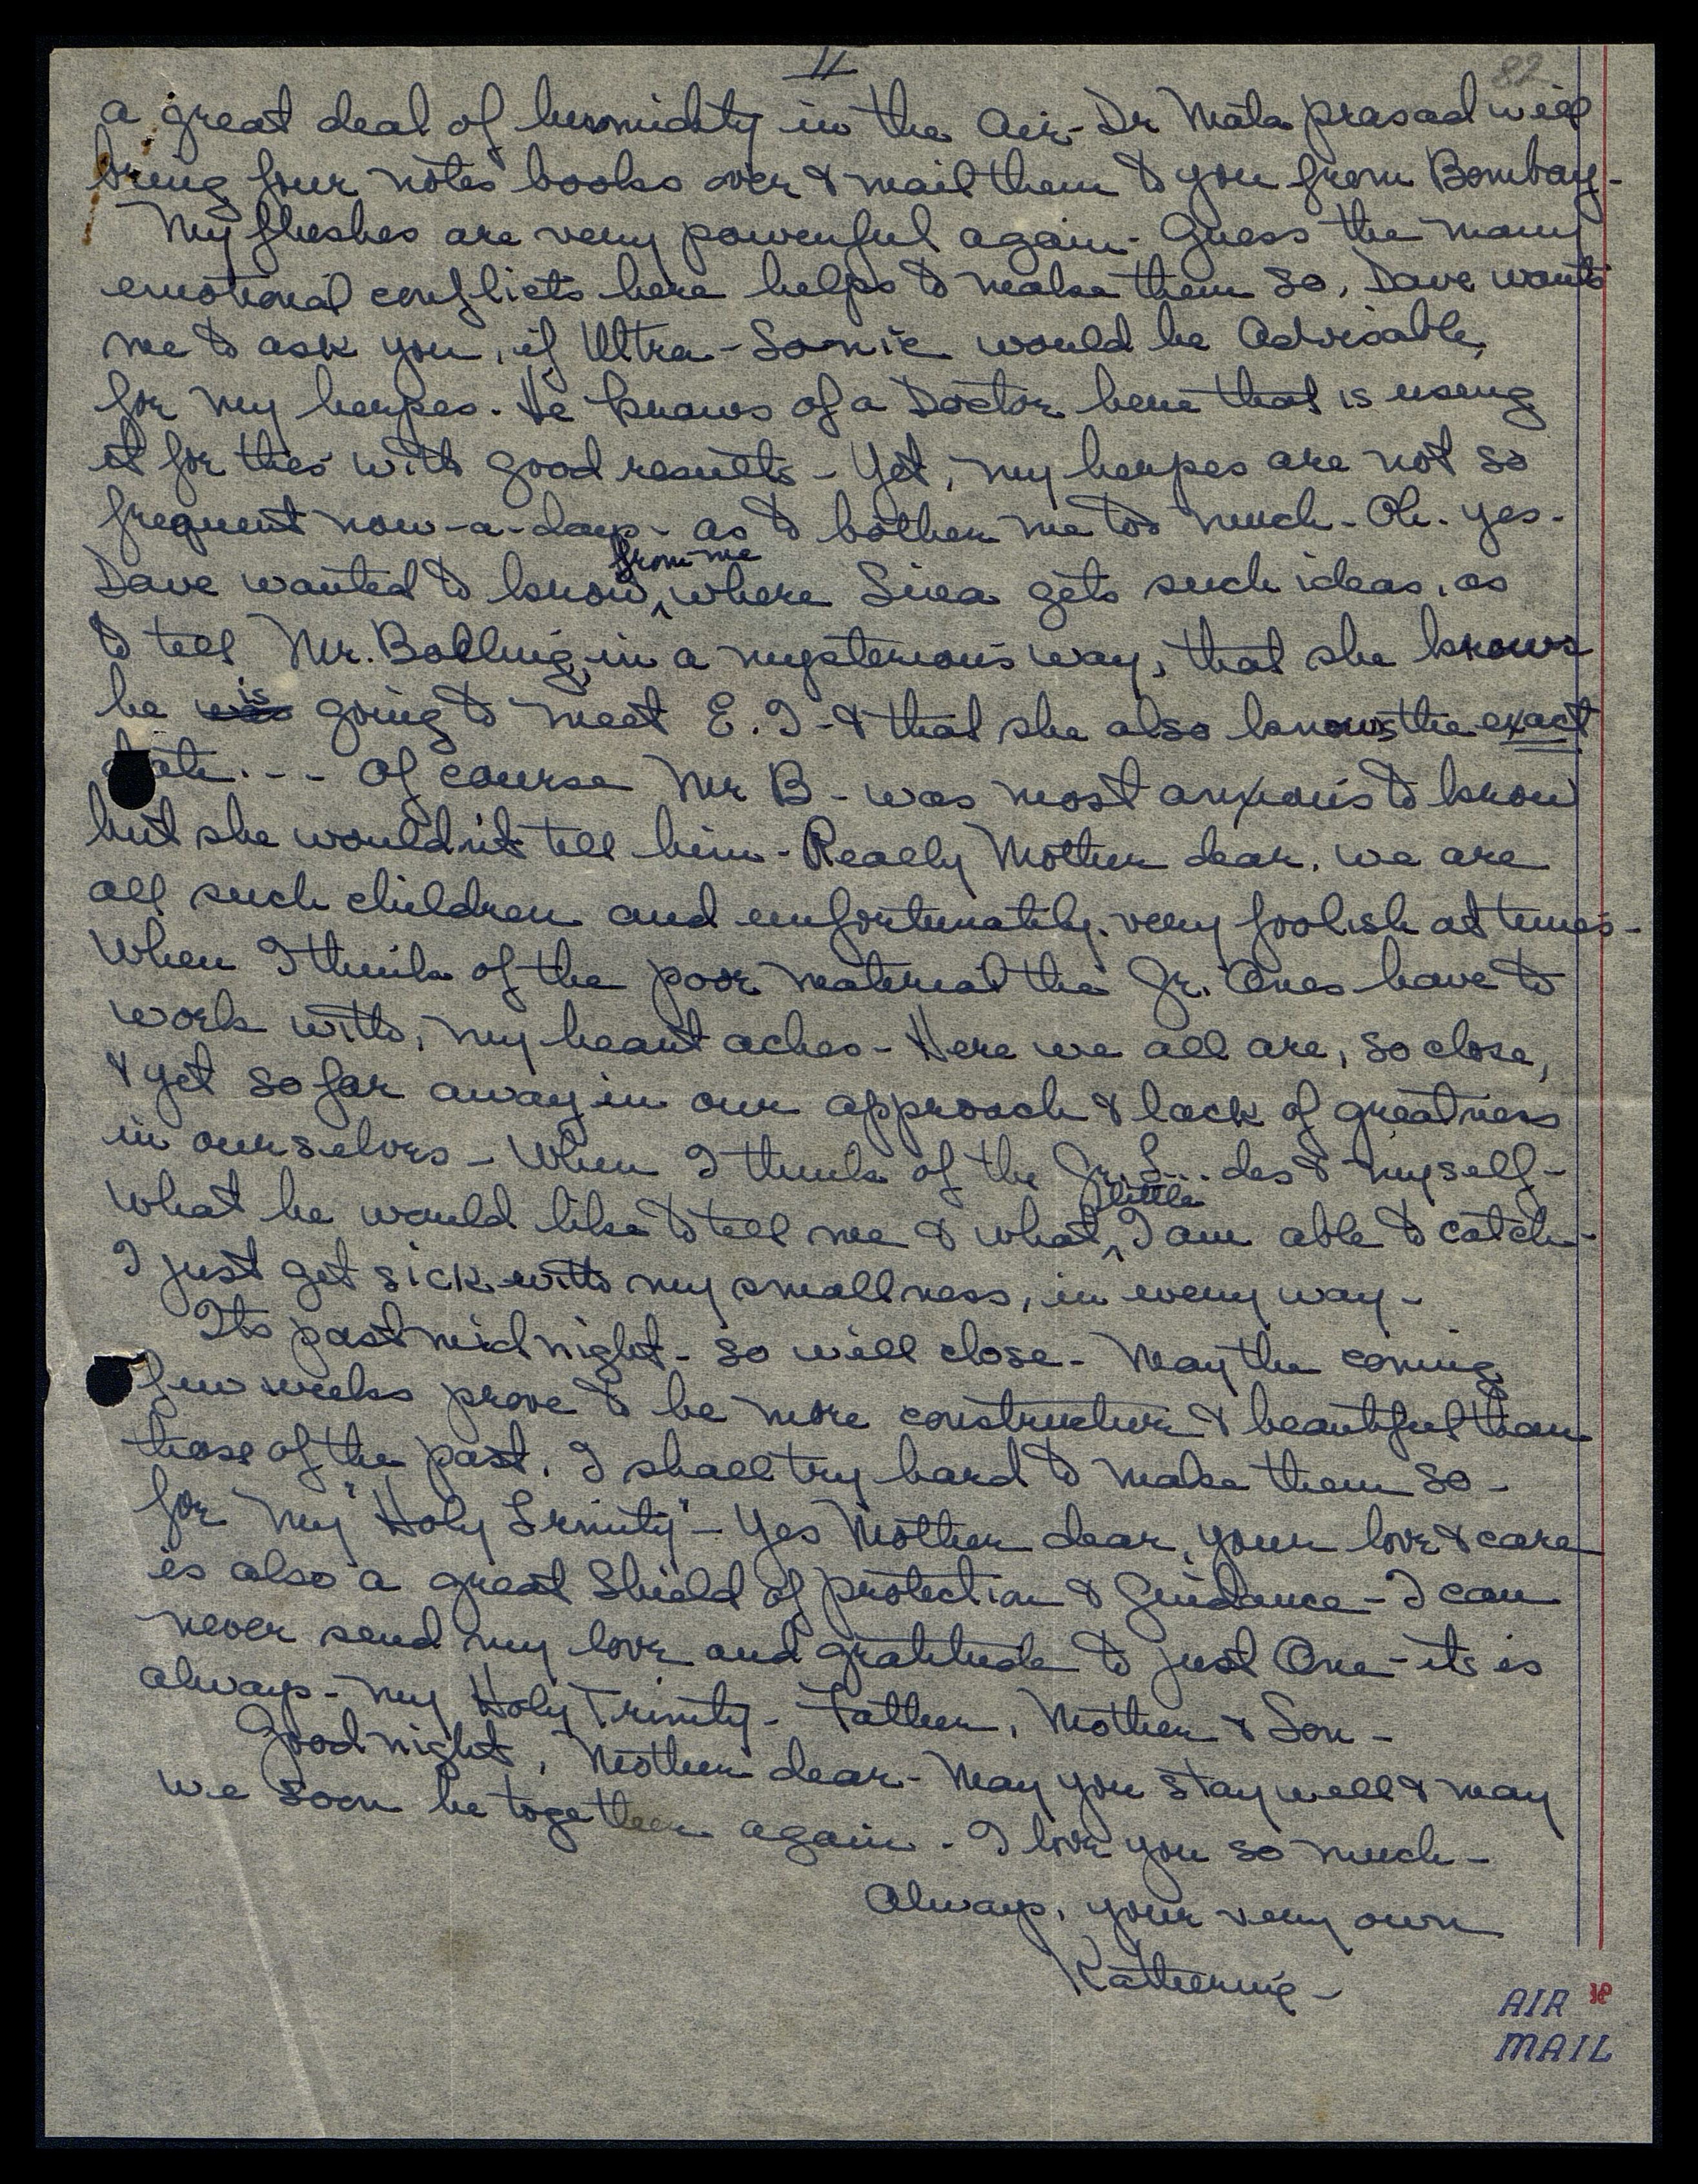 11
82
a great deal of hummidity in the Air - Dr Mata prasad will
bring four notes books over & mail them to you from Bombay -
My flushes are very powerful again - Guess the many
emotional conflicts here helps to make them so, Dave wants
me to ask you, if Ultra-Sonic would be Advisable,
for my herpes. He knows of a Doctor here that is using
it for this with good results - Yet, my herpes are not so
frequent now-a-days - as to bother me too much - Oh. yes -
from me
Dave wanted to know, where Sina gets such ideas, as
to tell Mr. Bolling, in a mysterious way, that she knows
he is going to meet E. I - & that she also knows the exact
date. -- Of course Mr B - was most anxious to know
but she wouldn't tell him - Really Mother dear, we are
all such children and unfortunately, very foolish at times -
When I think of the poor material the Gr. Ones have to
work with, my heart aches - Here we all are, so close,
& yet so far away in our approach & lack of greatness
in ourselves - When I think of the Gr. L... des & myself -
little
What he would like to tell me & what I am able to catch -
I just get sick with my smallness, in every way -
Its past midnight - so will close - May the coming
few weeks prove to be more constructive & beautiful than
those of the past. I shall try hard to make them so -
for my "Holy Trinity" - Yes Mother dear, your love & care
is also a great Shield of protection & Guidance - I can
never send my love and gratitude to just One - its is
always - my Holy Trinity - Father, Mother & Son -
Good night, Mother dear - May you stay well & may
we soon be together again - I love you so much -
Always, your very own
Katherine -
AIR
MAIL